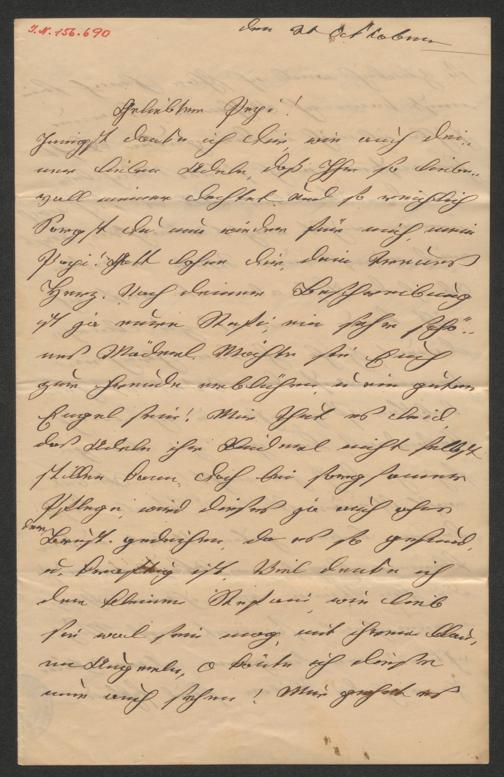 I.N. 156.690
den 21 October
Geliebter Pepi!
Innigst danke ich dir, wie auch dei-
ner lieben Adele, daß Ihr so liebe-
voll meiner dachtet. Und so reichlich
Sorgst du nun wieder für mich, mein
Pepi! Gott lohne dir, dein treues
Herz. Nach deiner Beschreibung
ist ja eure Stefi, ein sehr schö-
nes Mäderl. Möchte sie Euch
zur Freude erblühen, u ein guter
Engel sein! Mir thut es leid,
das Adele ihr Kinderl nicht selbst
stillen kann, doch bei sorgsamer
Pflege, wird dieses ja auch ohne
der Brust gedeihen, da es so gesund,
u. kraeftig ist. Viel denke ich
der kleinen Stefani, wie lieb
sie wol sein mag, mit ihren blau-
en Äugerln, o könnte ich dieses
nun auch sehen! Mir gehet es